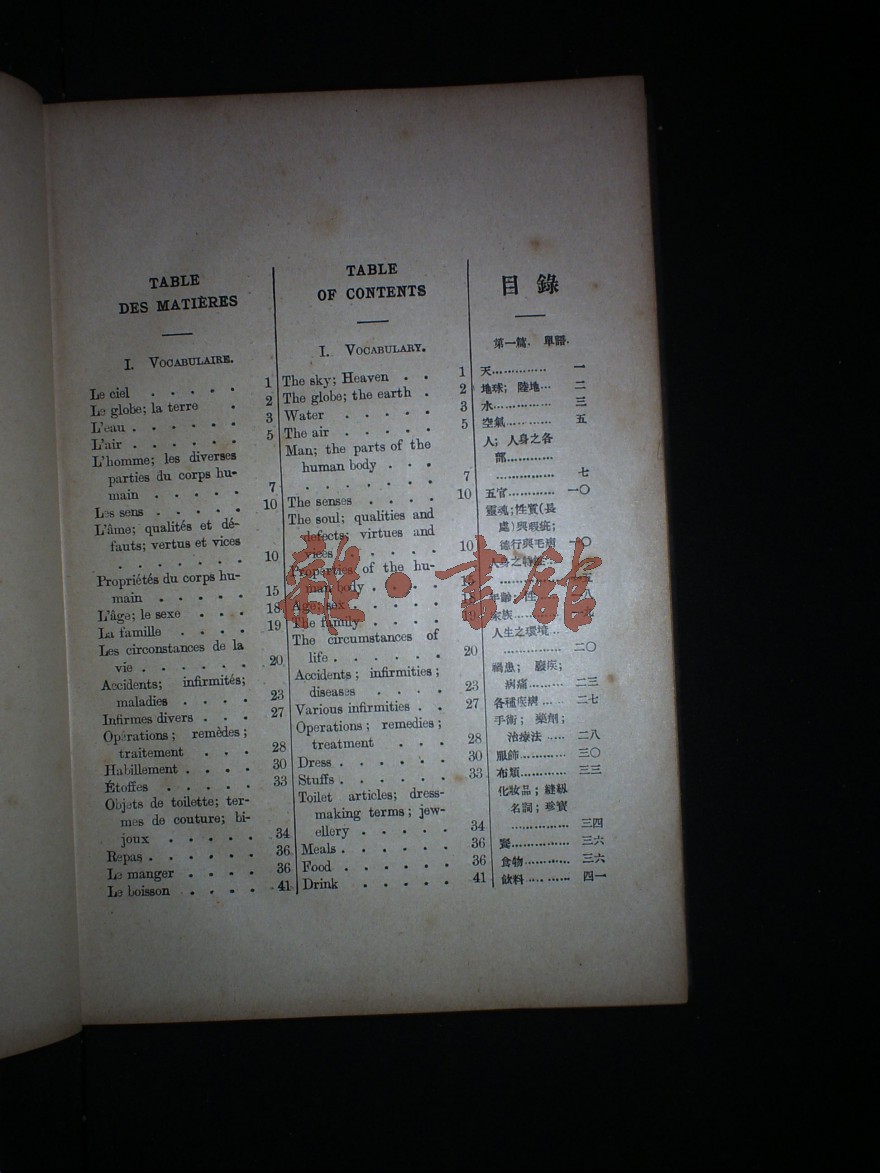 TABLE
DES MATIÈRES
I. VOCABULAIRE.
Le ciel . . . . . 1
Le globe; la terre . 2
L'eau . . . . . . 3
L'air . . . . . . 5
L'homme; les diverses
parties du corps hu-
main . . . . . 7
Les sens . . . . . 10
L'âme; qualités et dé-
fauts; vertus et vices
. . . . . . 10
Propriétés du corps hu-
main . . . . . 15
L'âge; le sexe . . . 18
La famille . . . . 19
Les circonstances de la
vie . . . . . . 20
Accidents; infirmités;
maladies . . . . 23
Infirmes divers . . . 27
Opérations; remèdes;
traitement . . . 28
Habillement . . . . 30
Étoffes . . . . . 33
Objets de toilette; ter-
mes de couture; bi-
joux . . . . . 34
Repas . . . . . . 36
Le manger . . . . 36
Le boisson . . . . 41
TABLE
OF CONTENTS
I. VOCABULARY.
The sky; Heaven . . 1
The globe; the earth . 2
Water . . . . . 3
The air . . . . . 5
Man; the parts of the
human body . . .
. . . . . . . 7
The senses . . . . 10
The soul; qualities and
defects; virtues and
vices . . . . . 10
Properties of the hu-
man body . . . . 15
Age; sex . . . . . 18
The family . . . . 19
The circumstances of
life . . . . . . 20
Accidents; infirmities;
diseases . . . . 23
Various infirmities . . 27
Operations; remedies;
treatment . . . 28
Dress . . . . . . 30
Stuffs . . . . . . 33
Toilet articles; dress-
making terms; jew-
ellery . . . . . 34
Meals . . . . . . 36
Food . . . . . . 36
Drink . . . . . 41
目錄
第一篇. 單語.
天.............. 一
地球; 陸地... 二
水............... 三
空氣............ 五
人; 人身之各
部............
............... 七
五官............ 一〇
靈魂;性質(長
處)與瑕疵;
德行與毛病 一〇
人身之特性...
............... 一五
年齡; 性 一八
家族 一九
人生之環境...
............... 二〇
禍患; 廢疾;
病痛......... 二三
各種疾病... 二七
手術; 藥劑;
治療法..... 二八
服飾............ 三〇
布類............ 三三
化妝品; 縫紉
名詞; 珍寶
............... 三四
餐............... 三六
食物............ 三六
飲料............ 四一
雜·書館